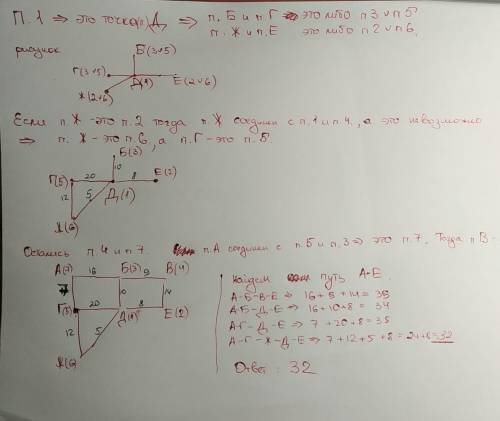 П. 1 ⇒ это точка(п)Д ⇒ п. Б и п. Г это либо п 3 ∨ п 5
п. Ж и п. Е это либо п 2 ∨ п 6.
рисунок
Б(3∨5)
Г(3∨5)
Д(1)
Е(2∨6)
Ж(2∨6)
Если п. Ж - это п. 2 тогда п Ж соединен с п. 1 и п. 4, а это невозможно
⇒ п. Ж - это п. 6, а п. Г - это п. 5.
Б(3)
10
Г(5) 20 8 Е(2)
12 5 Д(1)
Ж(6)
Остались п. 4 и п 7. п. А соединен с п. 5 и п. 3 ⇒ это п. 7. Тогда п В -
А(7) 16 Б(3) 9 В(4)
7 10 14
Г(5) 20 Д(1) 8 Е(2)
12 5
Ж(6)
Найдем путь А-Е.
А-Б-В-Е ⇒ 16+9+14 = 39
А-Б-Д-Е ⇒ 16+10+8 = 34
А-Г-Д-Е ⇒ 7+20+8 = 35
А-Г-Ж-Д-Е ⇒ 7+12+5+8 = 24+8 = 32
Ответ: 32